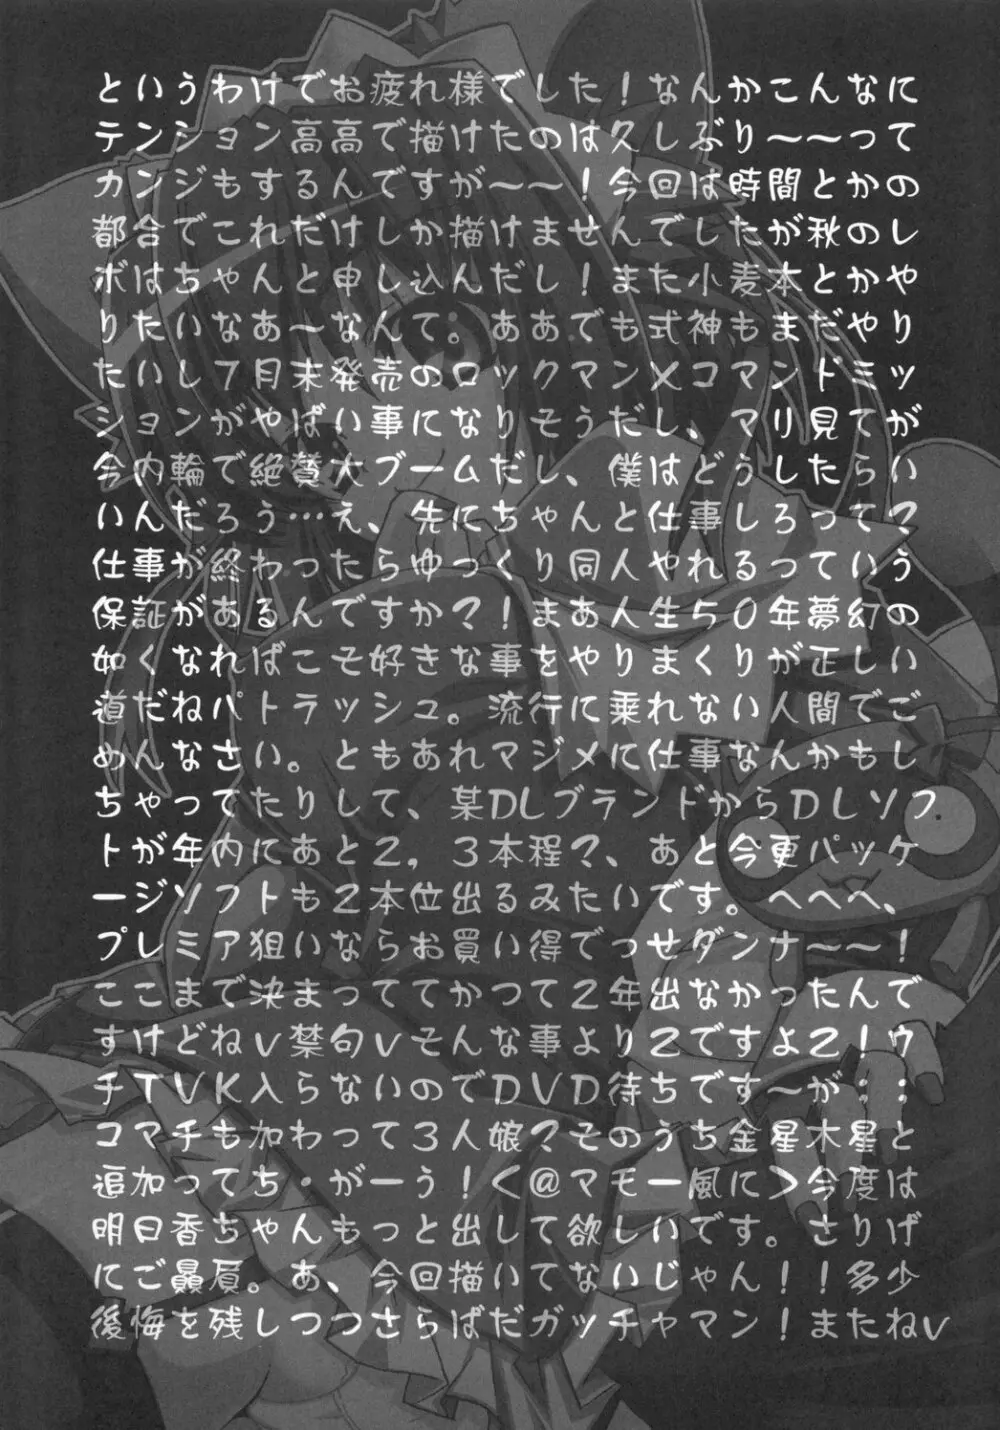 というわけでお疲れ様でした！なんかこんなに
テンション高高で描けたのは久しぶり～～って
カンジもするんですが～～！今回は時間とかの
都合でこれだけしか描けませんでしたが秋のレ
ボはちゃんと申し込んだし！また小麦本とかや
りたいなあ～なんて；ああでも式神もまだやり
たいし７月末発売のロックマンＸコマンドミッ
ションがやばい事になりそうだし、マリ見てが
今内輪で絶賛大ブームだし、僕はどうしたらい
いんだろう…え、先にちゃんと仕事しろって？
仕事が終わったらゆっくり同人やれるっていう
保証があるんですか？！まあ人生５０年夢幻の
如くなればこそ好きな事をやりまくりが正しい
道だねパトラッシュ。流行に乗れない人間でご
めんなさい。ともあれマジメに仕事なんかもし
ちゃってたりして、某DLブランドからＤＬソフ
トが年内にあと２，３本程？、あと今更パッケ
ージソフトも２本位出るみたいです。へへへ、
プレミア狙いならお買い得でっせダンナ～～！
ここまで決まっててかつて２年出なかったんで
すけどねｖ禁句ｖそんな事よりＺですよＺ！ウ
チＴＶＫ入らないのでＤＶＤ待ちです～が；；
コマチも加わって３人娘？そのうち金星木星と
追加ってち・がーう！＜＠マモー風に＞今度は
明日香ちゃんもっと出して欲しいです。さりげ
にご贔屓。あ、今回描いてないじゃん！！多少
後悔を残しつつさらばだガッチャマン！またねｖ